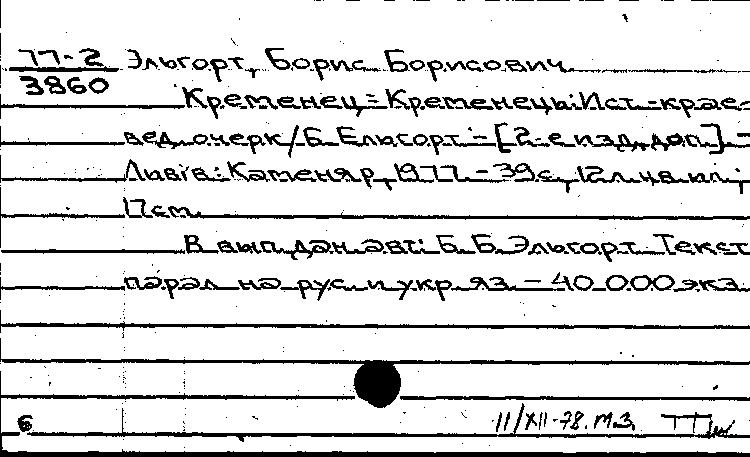 77-2
3860
Эльгорт, Борис Борисович
Кременец = Кременець: Ист.-крае-
вед. очерк / Б. Ельгорт. - [2-е изд., доп.] -
Львiв: Каменяр, 1977. - 39 с., 12 л. цв. ил.;
17 см.
В вып. дан. авт.: Б. Б. Эльгорт. Текст
парал. на рус. и укр. яз. - 40 000 экз.
6
11/XII-78. М.З.